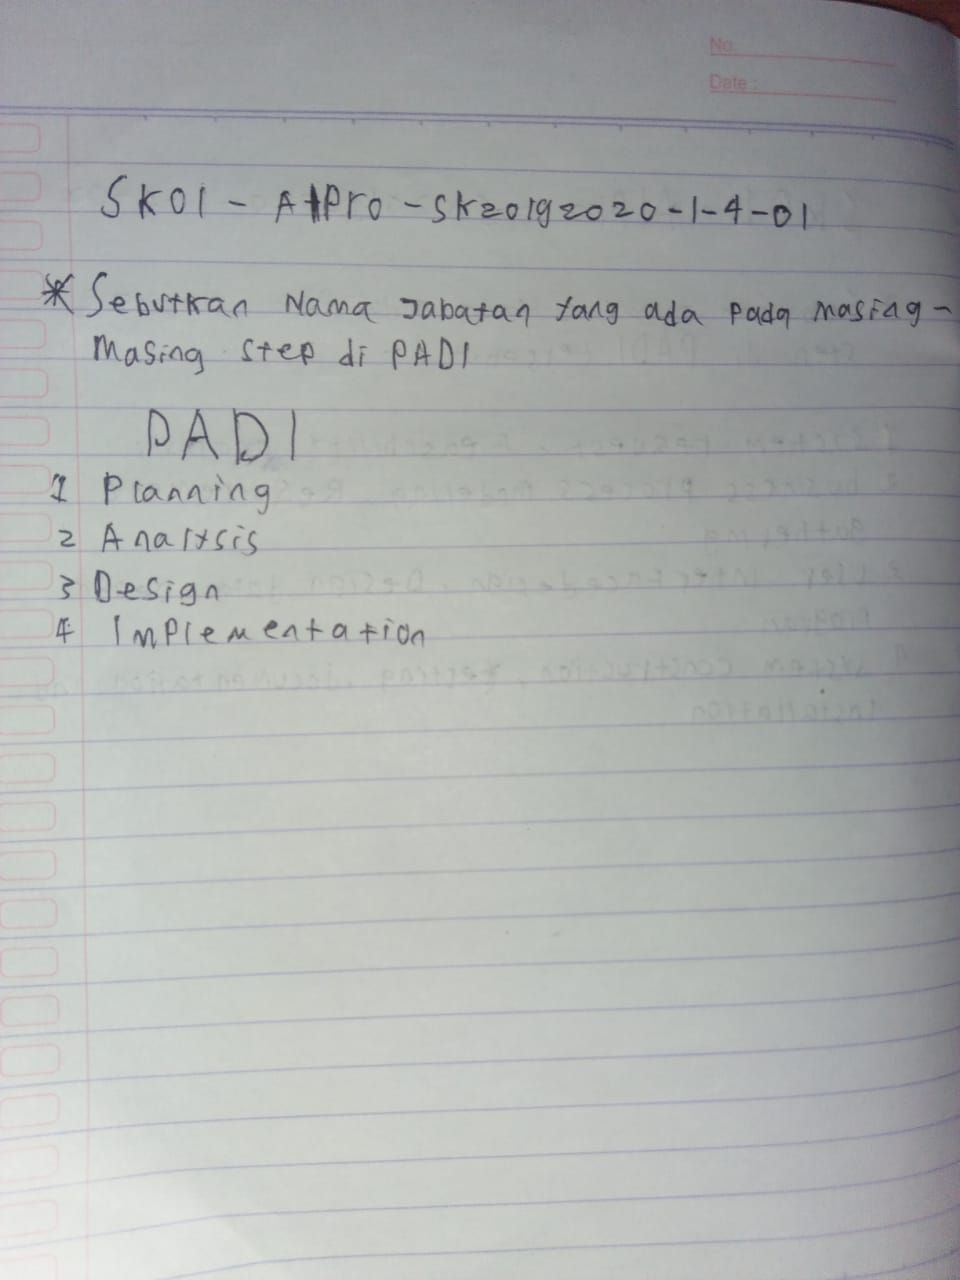 No.
Date :
SK01 - AtPro - SK20192020-1-4-01
* Sebutkan Nama Jabatan yang ada pada masing-
Masing step di PADI
PADI
1 Planning
2 Analysis
3 Design
4 Implementation